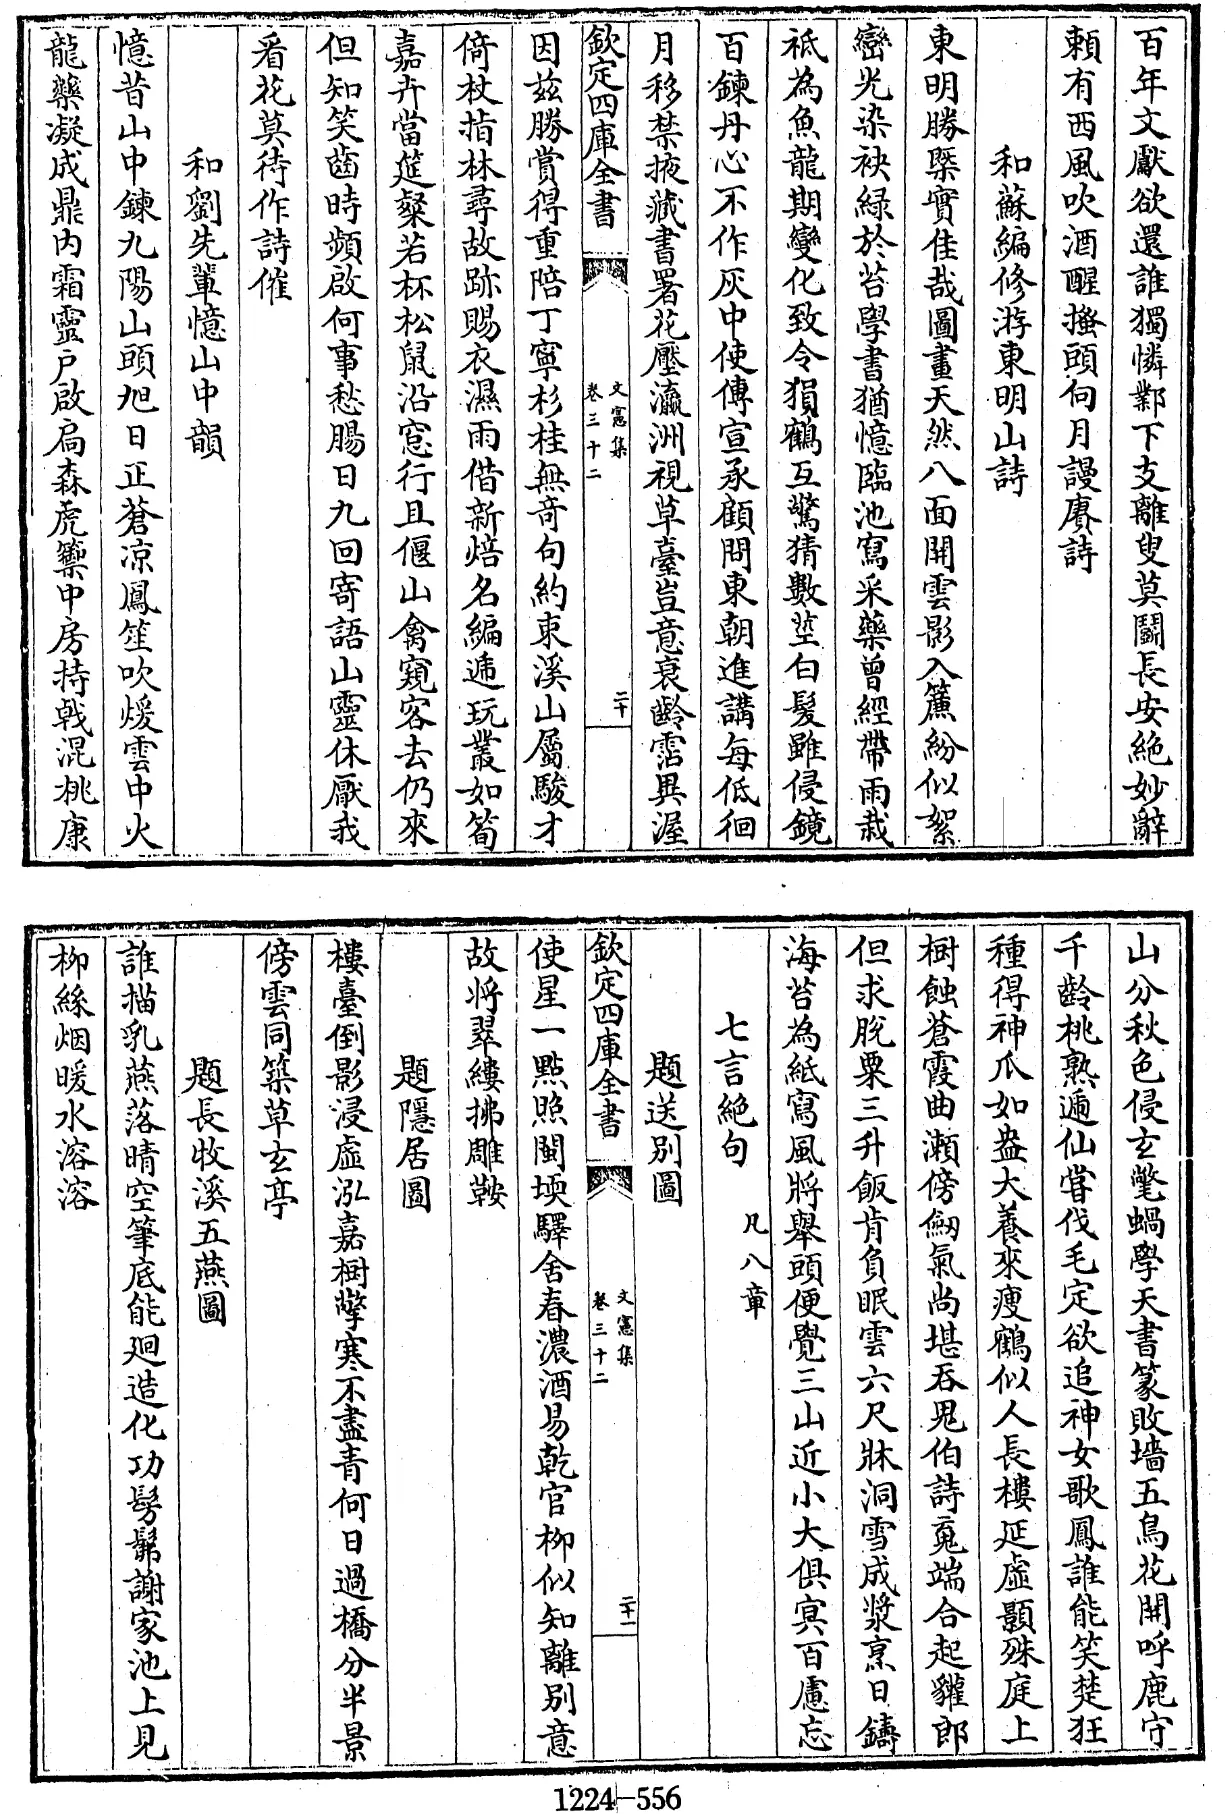 百年文獻欲還誰獨憐鄴下支離叟莫鬬長安絶妙辭
頼有西風吹酒醒搔頭向月謾賡詩
和蘇編修游東明山詩
東明勝槩實佳哉圖畫天然八面開雲影入簾紛似絮
巒光染袂緑於苔學書猶憶臨池寫采藥曾經帶雨栽
祗為魚龍期變化致令猨鶴互驚猜數莖白髪雖侵鏡
百鍊丹心不作灰中使傳宣承顧問東朝進講每低徊
月移禁掖藏書署花壓瀛洲視草臺豈意衰齡霑異渥
欽定四庫全書
文憲集
卷三十二
二十
因兹勝賞得重陪丁寧杉桂無竒句約束溪山屬駿才
倚杖指林尋故跡賜衣濕雨借新焙名編遞玩叢如筍
嘉卉當筵粲若杯松鼠沿窓行且偃山禽窺客去仍來
但知笑齒時頻啟何事愁腸日九回寄語山靈休厭我
看花莫待作詩催
和劉先輩憶山中韻
憶昔山中鍊九陽山頭旭日正蒼凉鳳笙吹煖雲中火
龍藥凝成鼎内霜靈户啟扃森虎籞中房持㦸混桃康
山分秋色侵玄氅蝸學天書篆敗墻五鳥花開呼鹿守
千齡桃熟遍仙嘗伐毛定欲追神女歌鳳誰能笑楚狂
種得神瓜如盎大養來瘦鶴似人長樓延虛顥殊庭上
樹蝕蒼霞曲瀬傍劒氣尚堪吞鬼伯詩㝹端合起貛郎
但求脫粟三升飯肯負眠雲六尺牀洞雪成漿烹日鑄
海苔為紙寫風將舉頭便覺三山近小大俱冥百慮忘
七言絶句 凡八章
題送别圖
欽定四庫全書
文憲集
卷三十二
二十一
使星一點照閩堧驛舍春濃酒易乾官柳似知離别意
故將翠縷拂雕鞍
題隱居圖
樓臺倒影浸虛泓嘉樹擎寒不盡青何日過橋分半景
傍雲同築草玄亭
題長牧溪五燕圖
誰描乳燕落晴空筆底能廻造化功髣髴謝家池上見
柳絲烟暖水溶溶
1224-556